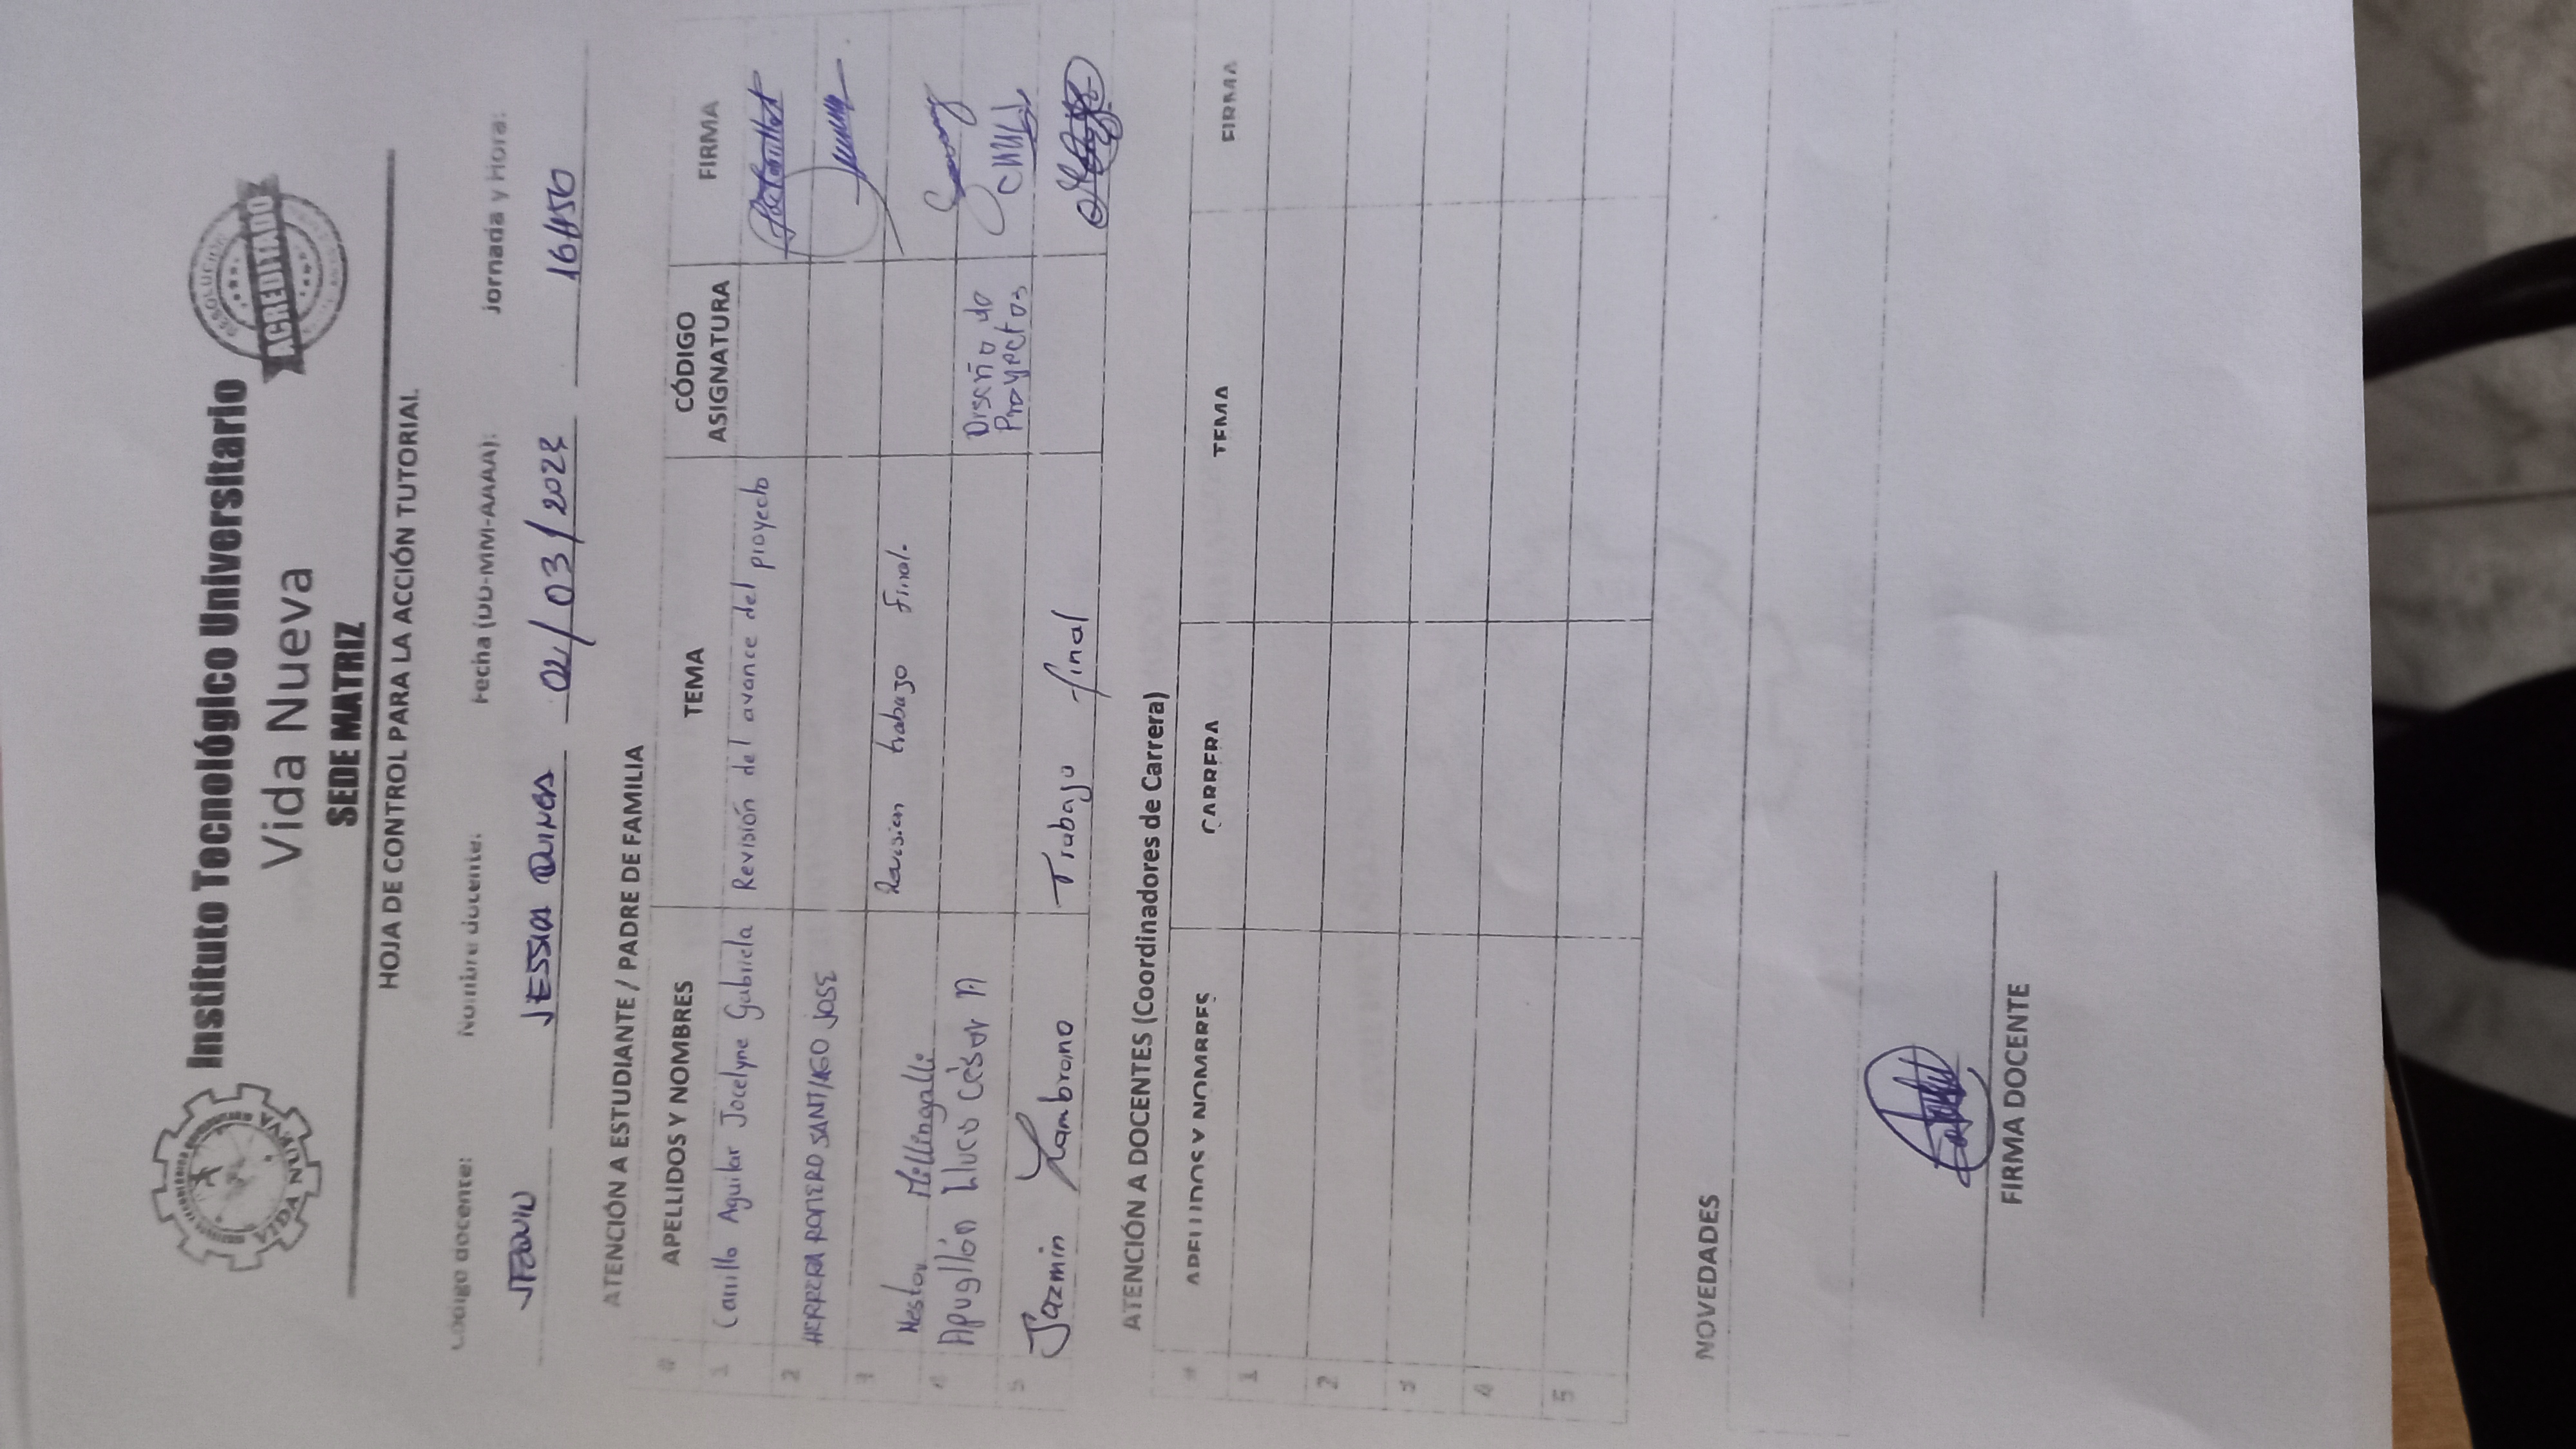 Instituto Tecnológico Universitario
Vida Nueva
SEDE MATRIZ
VIDA NUEVA
RESOLUCIÓN
ACREDITADO
HOJA DE CONTROL PARA LA ACCIÓN TUTORIAL
Código docente: Nombre docente: Fecha (DD-MM-AAAA): Jornada y Hora:
JESSICA QUINGA 02/03/2023 16H50
ATENCIÓN A ESTUDIANTE / PADRE DE FAMILIA
# APELLIDOS Y NOMBRES TEMA CÓDIGO ASIGNATURA FIRMA
1 Carrillo Aguilar Jocelyne Gabriela Revisión del avance del proyecto
2 HERRERA ROMERO SANTIAGO JOSE
3 Nestor Millingalli Revision trabajo final.
4 Apugllón Lluco César A Diseño de Proyectos
5 Jazmin Zambrano Trabajo final
ATENCIÓN A DOCENTES (Coordinadores de Carrera)
# APELLIDOS Y NOMBRES CARRERA TEMA FIRMA
1
2
3
4
5
NOVEDADES
FIRMA DOCENTE